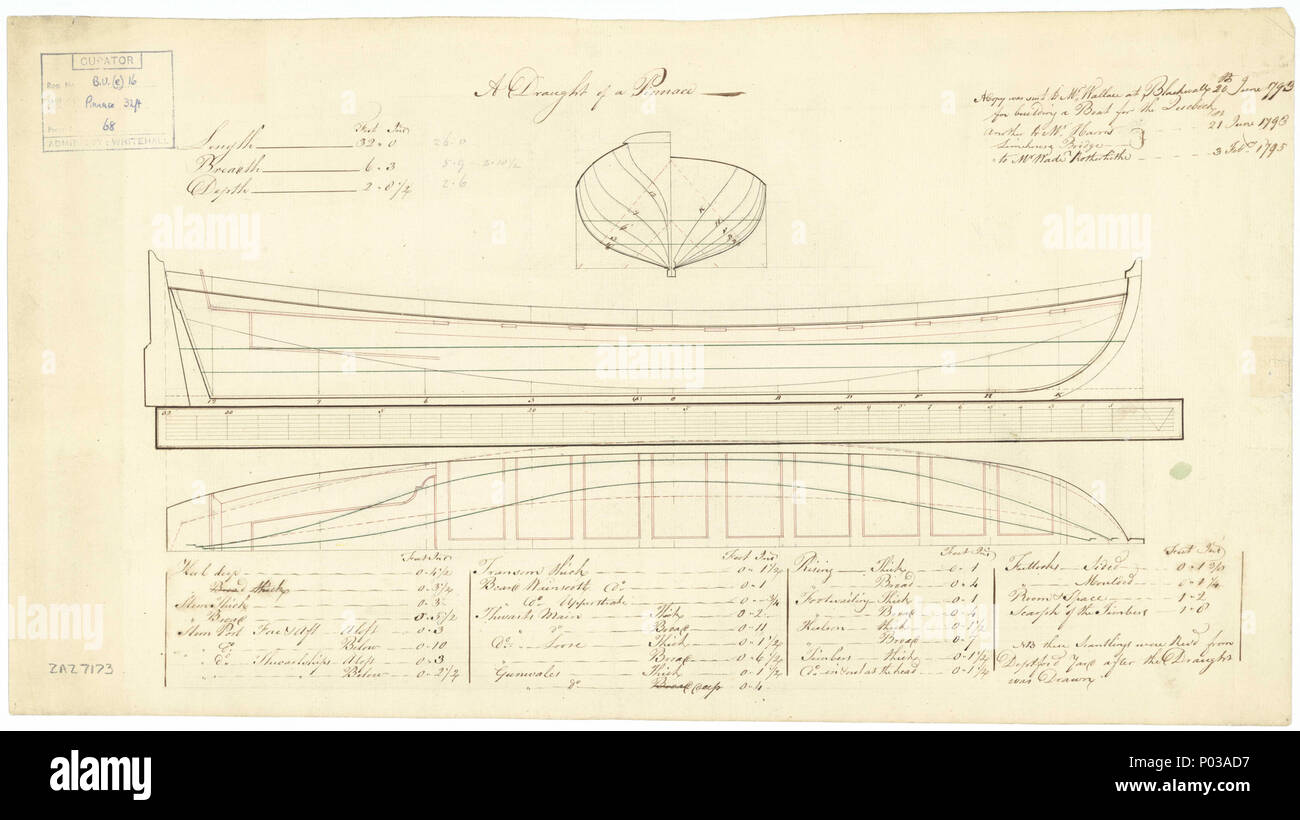 CURATOR
B.U.(e) 16
Pinnace 32ft
68
ADMIRALTY : WHITEHALL
A Draught of a Pinnace
Feet Ins
Length 32..0 26.0
Breadth 6..3 5.9 - 2.10½
Depth 2..8¼ 2.6
A Copy was sent to Mr Wallace at Blackwall 20th June 1793
for building a Boat for the
Another to Mr Harris 21 June 1793
Limehouse Bridge
to Mr Wade Rotherhithe 3 Feby 1795
Feet Ins
Keel deep 0..4½
Broad Thick 0..3¼
Stem Thick 0..3
" Broad 0..5½
Stem Post Fore & Aft Aloft 0..3
" Do Below 0..10
" Do Thwartships Aloft 0..3
" " Below 0..2¼
Feet Ins
Transom Thick 0..1½
Board Wainscott Do 0..1
" Do Upperstrake 0..¾
Thwarts Main Thick 0..2
" do Broad 0..11
Do Loose Thick 0..1¼
Broad 0..6¼
Gunwales Thick 0..1¼
" do Broad deep 0..4
Feet Ins
Rising Thick 0..1
" Broad 0..4
Footwaling Thick 0..1
" Broad
Keelson thick 0..1½
Broad 0..7
Timbers Thick 0..1¼
Do in & out at the head 0..1¼
Feet Ins
Futtocks Sided
" Moulded 0..1¼
Room & Space 1..2
Scarph of the Timbers 1..6
NB these Scantlings were Recd from
Deptford Yard after the Draught
was Drawn
ZAZ7173
alamy
Image ID: P03AD7
www.alamy.com